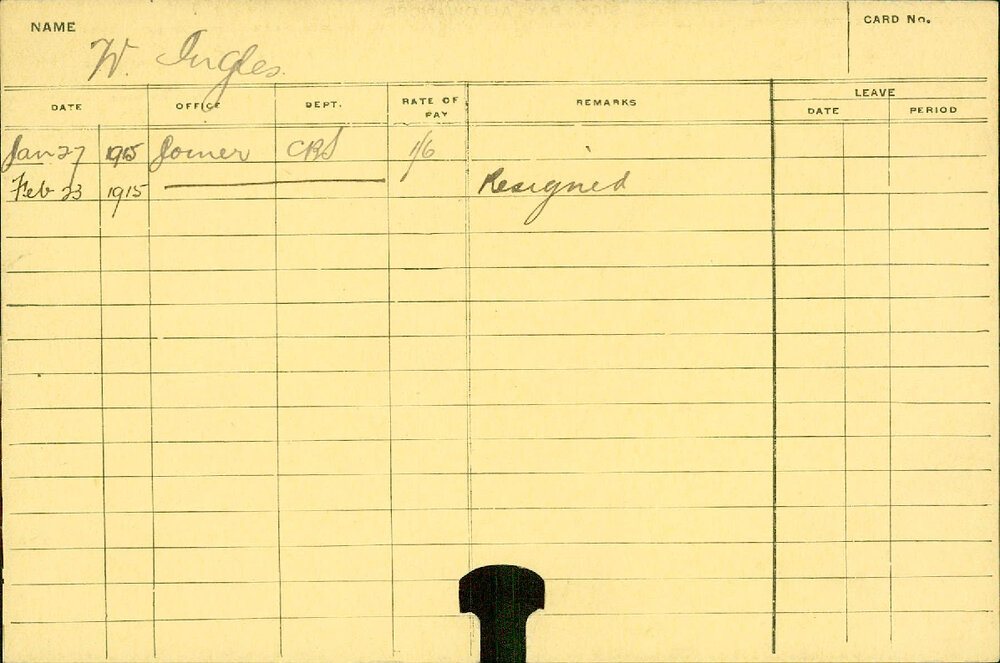 NAME
W. Ingles.
CARD No.
DATE OFFICE DEPT. RATE OF PAY REMARKS LEAVE
DATE PERIOD
Jan 27 1915 Joiner CRS 1/6
Feb 23 1915 Resigned